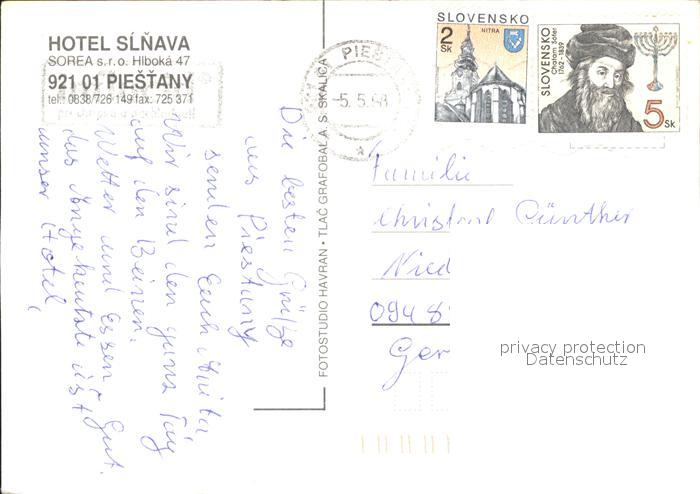 HOTEL SĹŇAVA
SOREA s.r.o. Hlboká 47
921 01 PIEŠŤANY
tel.: 0838/726 149 fax: 725 371
Die besten Grüße
aus Piestany
senden Euch Anita
Wir sind den ganz Tag
auf den Beinen.
Wetter und Essen Gut.
das Angekreutzte ist
unser Hotel
FOTOSTUDIO HAVRAN • TLAČ GRAFOBAL A. S. SKALICA
PIEŠ
-5. 5. 98
SLOVENSKO
2
Sk
NITRA
SLOVENSKO
Chatam Sófer
1762 - 1839
5 Sk
Familie
Günther
Nied
094 8
Ger
privacy protection
Datenschutz